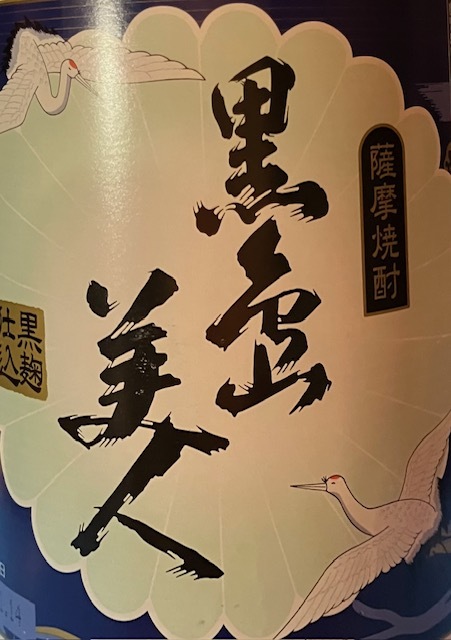 薩摩焼酎
黒島
美人
黒麹
仕込
日
.14